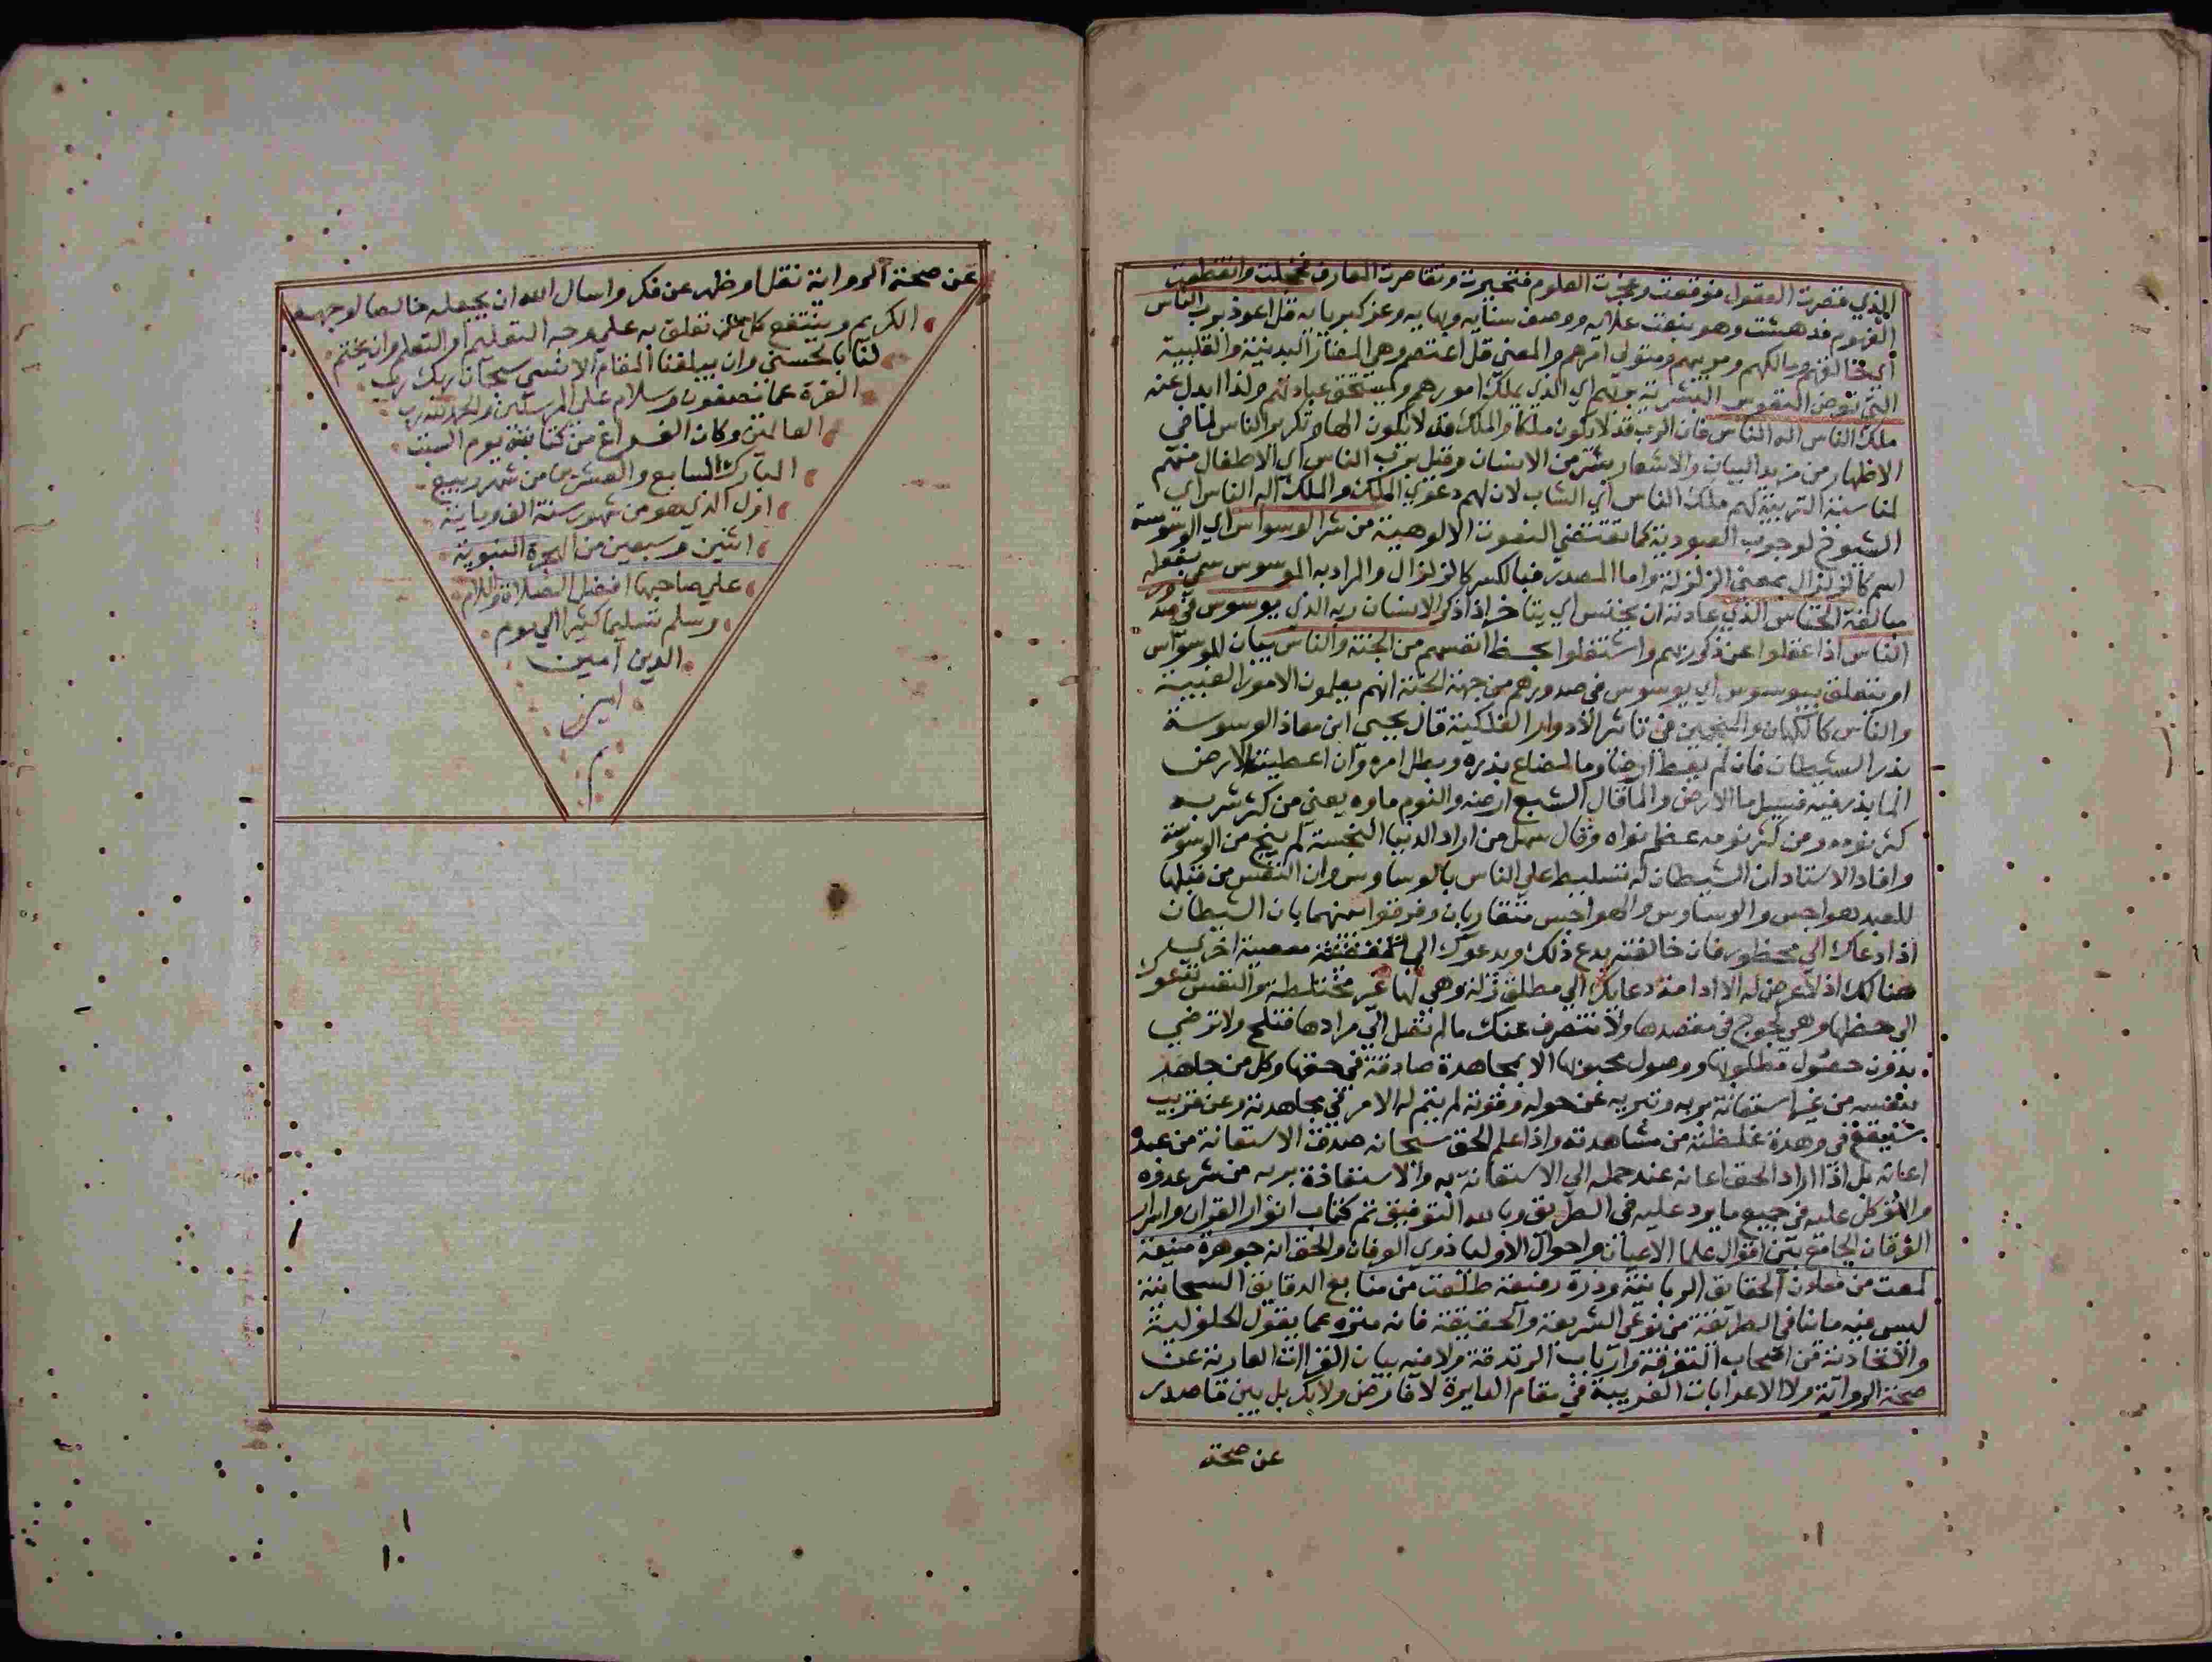 الذي قصرت العقول فوقفت وعجزت العلوم فتحيرت وتقاصرت المعارف فخجلت وانقطعت
الفهوم فدهشت وهو بنعت علايه ووصف سنايه وبهايه وعز كبريايه قل اعوذ برب الناس
اي خالقهم ومالكهم ومربيهم ومتولي امرهم والمعني قل اعتصم وهي المضار البدنية والقلبية
التي تعرض النفوس البشرية بربهم اي الذي يملك امورهم ويستحق عبادتهم ولذا ابدل عنه
ملك الناس اله الناس فان الرب قد لا يكون ملكا والملك قد لا يكون الها وتكرير الناس لما في
الاظهار من مزيد البيان والاشعار بشرف الانسان وقيل برب الناس اي الاطفال منهم
لمناسبة التربية لهم ملك الناس اي الشاب لان لهم دعوي الملك والملك اله الناس اي
الشيوخ لوجوب العبودية كما تقتضي النعوت الالوهية من شر الوسواس اي الوسوسة
اسم كالزلزال بمعني الزلزلة واما المصدر فبالكسر كالزلزال والمراد به الموسوس سمي بفعله
مبالغة الخناس الذي عادته ان يخنس اي يتاخر اذا ذكر الانسان ربه الذي يوسوس في صدور
الناس اذا غفلوا عن ذكر ربهم واشتغلوا بحظ انفسهم من الجنة والناس بيان للوسواس
او يتعلق بيوسوس اي يوسوس في صدورهم من جهة الجنة انهم يعلمون الامور الغيبية
والناس كالكهان والمنجمين في تاثير الادوار الفلكية قال يحيي ابن معاذ الوسوسة
بذر الشيطان فان لم يعط ارضا وما لضاع بذره وبطل امره وان اعطيته الارض
الما بذر فيه فسيل ما الارض والما قال الشبع ارضه والنوم ماوه يعني من كثر شربه
كثر نومه ومن كثر نومه عظم نواه وقال سهل من اراد الدنيا النجسة لم ينج من الوسوسة
وافاد الاستاد ان الشيطان له تسليط علي الناس بالوساوس وان النفس من قبلها
للعبد هواجس والوساوس والهواجس متقاربان وفرقوا بينهما بان الشيطان
اذا دعاك الي محظور فان خالفته يدع ذلك ويدعوك الي معصية اخري
هنالك اذ لا غرض له الا ادامة دعايك الي مطلق زلة وهي لها غير مختلطة والنفس تدعوك
الي حظها وهي لجوج في مقصدها ولا تنصرف عنك ما لم تصل الي مرادها فتلح ولا ترضي
بدون حصول مطلوبها ووصول محبوبها الا بمجاهدة صادقة في حقها وكل من جاهد
بنفسه من غير استعانة بربه وتبريه عن حوله وقوته لم يتم له الامر في مجاهدته وعن قريب
سيقع في وهدة غلظة من مشاهدته واذا علم الحق سبحانه صدق الاستعانة من عبده
اعانه بل اذا اراد الحق اعانه عند حمله الي الاستعانة به والاستعاذة بربه من شر عدوه
والتوكل عليه في جميع ما يرد عليه في الطريق وبالله التوفيق تم كتاب انوار القران واسرار
الفرقان الجامع بين اقوال علما الاعيان واحوال الاوليا ذوي العرفان والحق انه جوهرة منيعة
لمعت من معادن الحقايق الربانية ودرة رفيعة طلعت من منابع الدقايق السبحانية
ليس فيه ما ينافي الطريقة من نوعي الشريعة والحقيقة فانه منزه عما يقول الحلولية
والاتحادية من اصحاب التفرقة وارباب الزندقة ولا فيه بيان القراات العارية عن
صحة الرواية ولا الاعرابات الغريبة في مقام الدراية لا فارض ولا بكر بل بين ما صدر
عن صحة
عن صحة الرواية نقل او ظهر عن فكر واسال الله ان يجعله خالصا لوجهه
الكريم وينتفع كل من تعلق به علي وجه التعليم او التعلم وان يختم
لنا بالحسني وان يبلغنا المقام الاسني سبحان ربك رب
العزة عما يصفون وسلام علي المرسلين والحمد لله رب
العالمين وكان الفراغ من كتابته يوم السبت
المبارك السابع والعشرين من شهر ربيع
اول الذي هو من شهور سنة الف وماية
اثنين وسبعين من الهجرة النبوية
علي صاحبها افضل الصلاة والسلام
وسلم تسليما كثيرا الي يوم
الدين آمين
امين
م